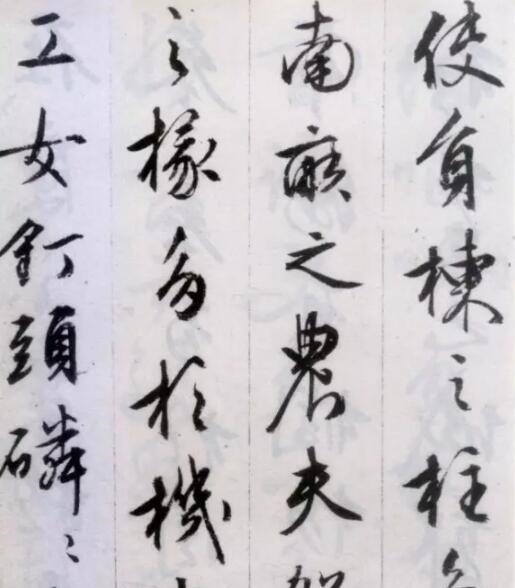 使負棟之柱
南畝之農夫
之椽多於機
工女釘頭磷〻